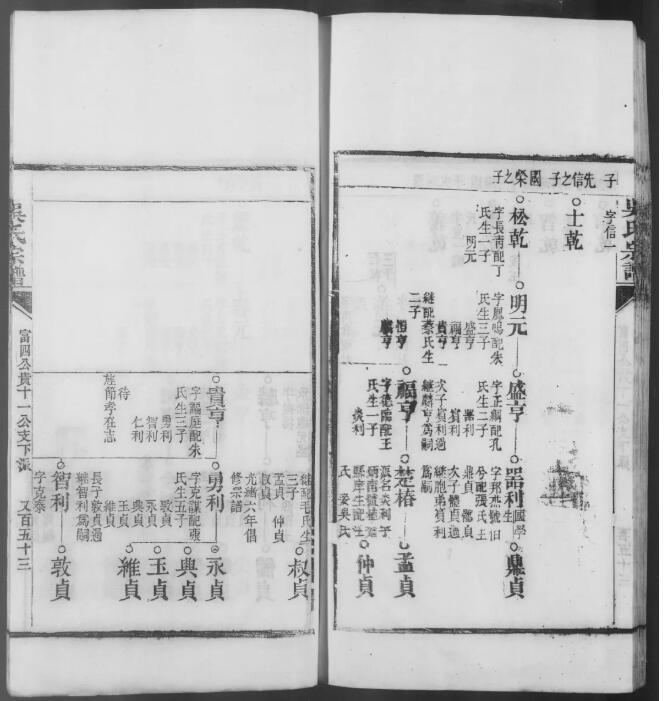 吳氏宗譜
子先信之子國榮之子
士乾
字信一
松乾
字長青配丁
氏生一子
明元
明元
字鳳鳴配朱
氏生三子
盛亨
福亨
貴亨
繼配蔡氏生
二子
恒亨
麟亨
盛亨
字正綱配孔
氏生二子
器利
賓利
次子賓利過
繼麟亨爲嗣
福亨
字德臨配王
氏生一子
炎利
器利
國學生
字邦杰號旧
兮配張氏王
鼎貞
次子體貞過
繼胞弟賓利
爲嗣
楚椿
派名炎利子
縣庠生配杜
氏
妾吳氏
鼎貞
孟貞
仲貞
叔貞
繼配毛氏生
三子
孟貞
仲貞
叔貞
光緒六年倡
修宗譜
貴亨
字福庭配朱
氏生三子
勇利
智利
仁利
待
旌節孝在志
勇利
字克謀配張
氏生五子
敦貞
永貞
典貞
玉貞
維貞
長子敦貞過
繼智利爲嗣
永貞
典貞
玉貞
維貞
智利
字克泰
敦貞
吳氏宗譜
富四公貴十一公支下派
又百五十三